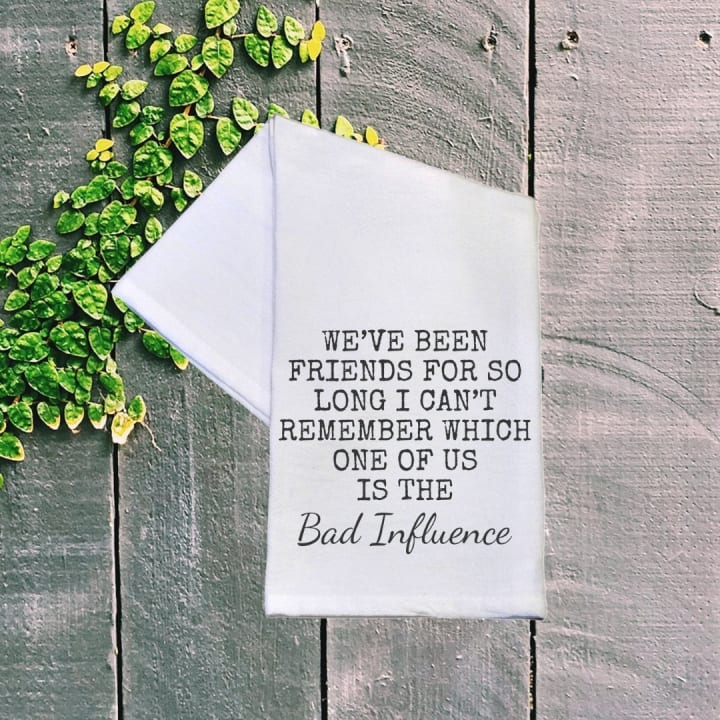 WE'VE BEEN
FRIENDS FOR SO
LONG I CAN'T
REMEMBER WHICH
ONE OF US
IS THE
Bad Influence